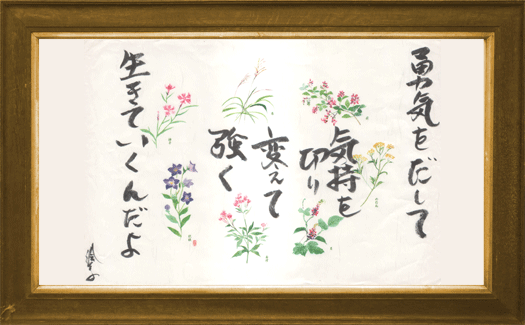 勇気をだして
気持を
切り
変えて
強く
生きていくんだよ